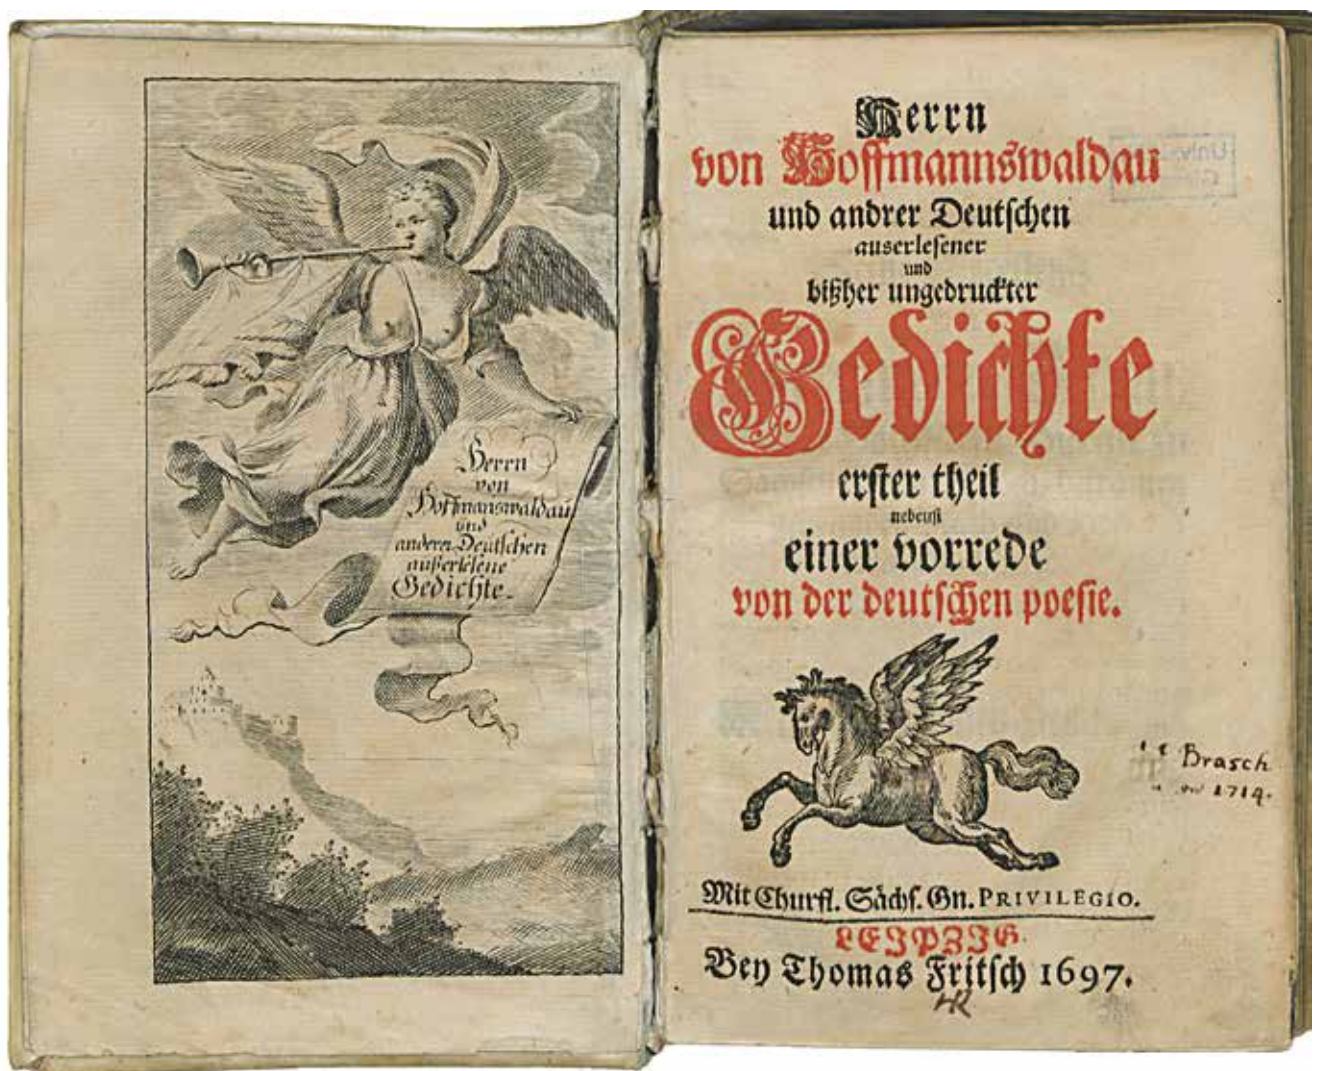 Herrn
von
Hoffmanswaldau
und
andern Deutschen
außerlesene
Gedichte.
Herrn
von Hoffmannswaldau
und andrer Deutschen
auserlesener
und
bißher ungedruckter
Gedichte
erster theil
nebenst
einer vorrede
von der deutschen poesie.
Brasch
1714.
Mit Churfl. Sächs. Gn. PRIVILEGIO.
LEJPZJG
Bey Thomas Fritsch 1697.